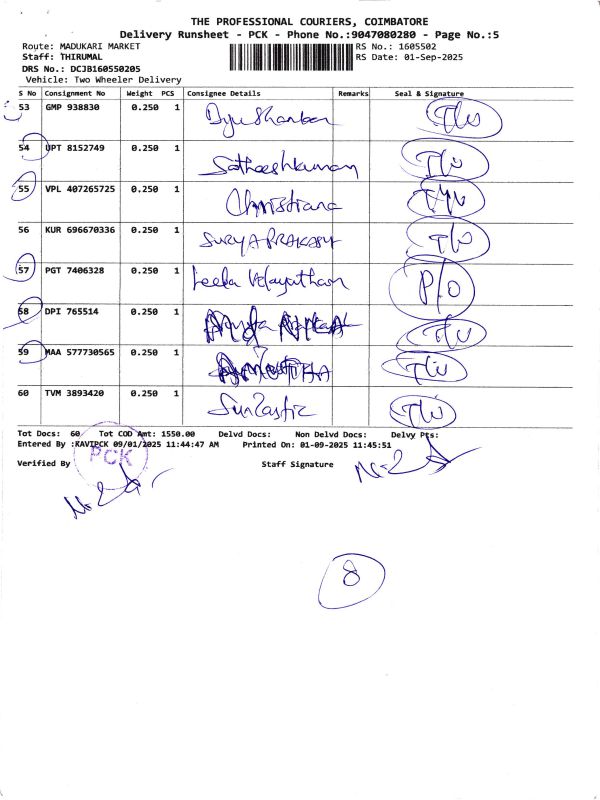 THE PROFESSIONAL COURIERS, COIMBATORE
Delivery Runsheet - PCK - Phone No.:9047080280 - Page No.:5
Route: MADUKARI MARKET RS No.: 1605502
Staff: THIRUMAL RS Date: 01-Sep-2025
DRS No.: DCJB160550205
Vehicle: Two Wheeler Delivery
S No Consignment No Weight PCS Consignee Details Remarks Seal & Signature
53 GMP 938830 0.250 1
54 UPT 8152749 0.250 1 Satheeshkumar
55 VPL 407265725 0.250 1 Christiana
56 KUR 696670336 0.250 1 SURYA PRAKASH
57 PGT 7406328 0.250 1 Leela Velayutham P/O
58 DPI 765514 0.250 1
59 MAA 577730565 0.250 1
60 TVM 3893420 0.250 1
Tot Docs: 60 Tot COD Amt: 1550.00 Delvd Docs: Non Delvd Docs: Delvy Pts:
Entered By :KAVIPCK 09/01/2025 11:44:47 AM Printed On: 01-09-2025 11:45:51
PCK
Verified By Staff Signature
8